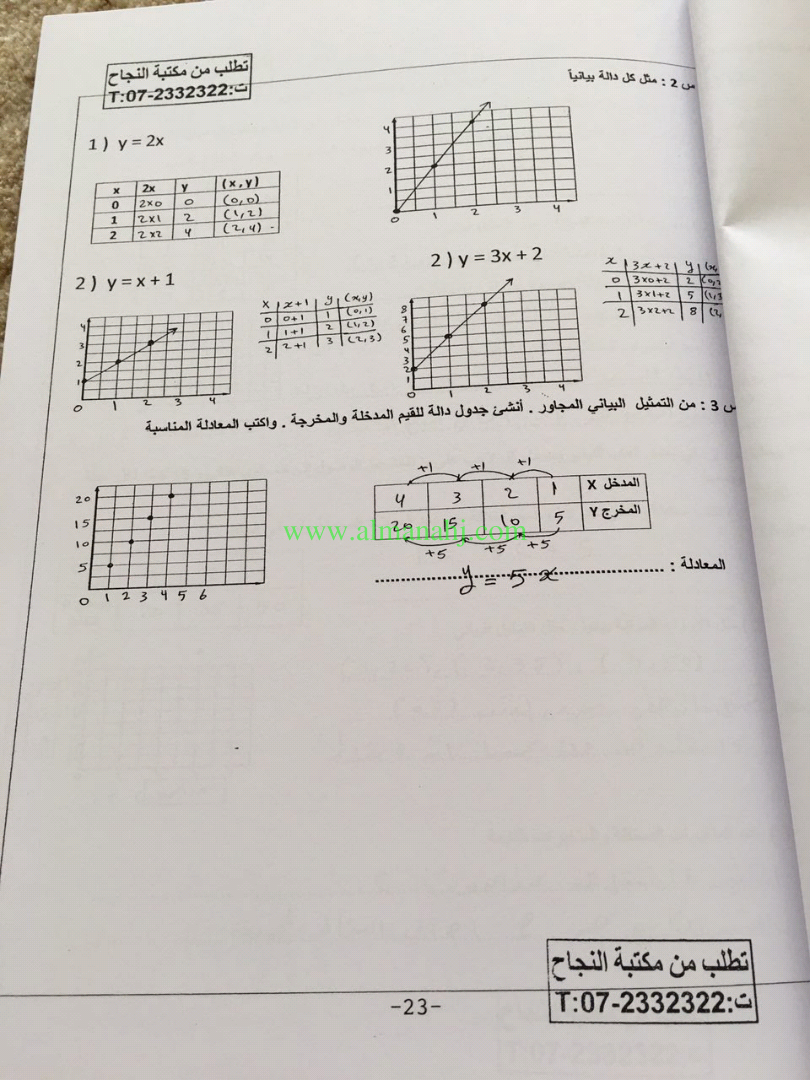 تطلب من مكتبة النجاح
ت:T:07-2332322
س 2 : مثل كل دالة بيانياً
1 ) y = 2x
x 2x y (x,y)
0 2x0 0 (0,0)
1 2x1 2 (1,2)
2 2x2 4 (2,4)
4
3
2
1
0 1 2 3 4
2 ) y = x + 1
x x+1 y (x,y)
0 0+1 1 (0,1)
1 1+1 2 (1,2)
2 2+1 3 (2,3)
4
3
2
1
0 1 2 3 4
2 ) y = 3x + 2
x 3x+2 y
0 3x0+2 2
1 3x1+2 5
2 3x2+2 8
8
7
6
5
4
3
2
1
0 1 2 3 4
س 3 : من التمثيل البياني المجاور . أنشئ جدول دالة للقيم المدخلة والمخرجة . واكتب المعادلة المناسبة
+1 +1 +1
المدخل X 1 2 3 4
المخرج Y 5 10 15 20
+5 +5 +5
المعادلة : y = 5x
20
15
10
5
0 1 2 3 4 5 6
www.almanahj.com
تطلب من مكتبة النجاح
ت:T:07-2332322
-23-